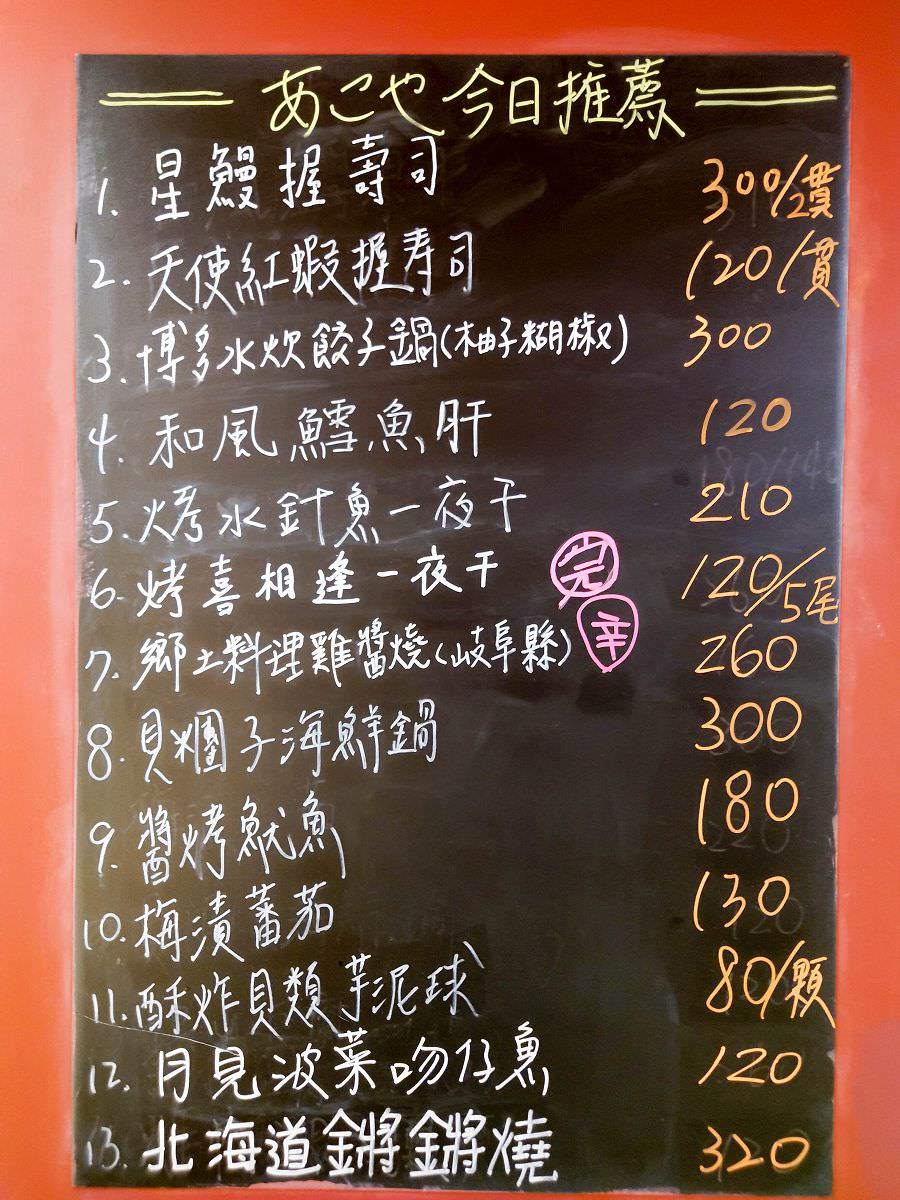 あこや 今日推薦
1. 星鰻握壽司 300/2貫
2. 天使紅蝦握寿司 120/貫
3. 博多水炊餃子鍋(柚子糊椒) 300
4. 和風鱈魚肝 120
5. 烤水針魚一夜干 210
6. 烤喜相逢一夜干 完 120/5尾
7. 鄉土料理雞醬燒(岐阜縣) 辛 260
8. 貝糰子海鮮鍋 300
9. 醬烤魷魚 180
10. 梅漬蕃茄 130
11. 酥炸貝類芋泥球 80/顆
12. 月見波菜吻仔魚 120
13. 北海道鏘鏘燒 320